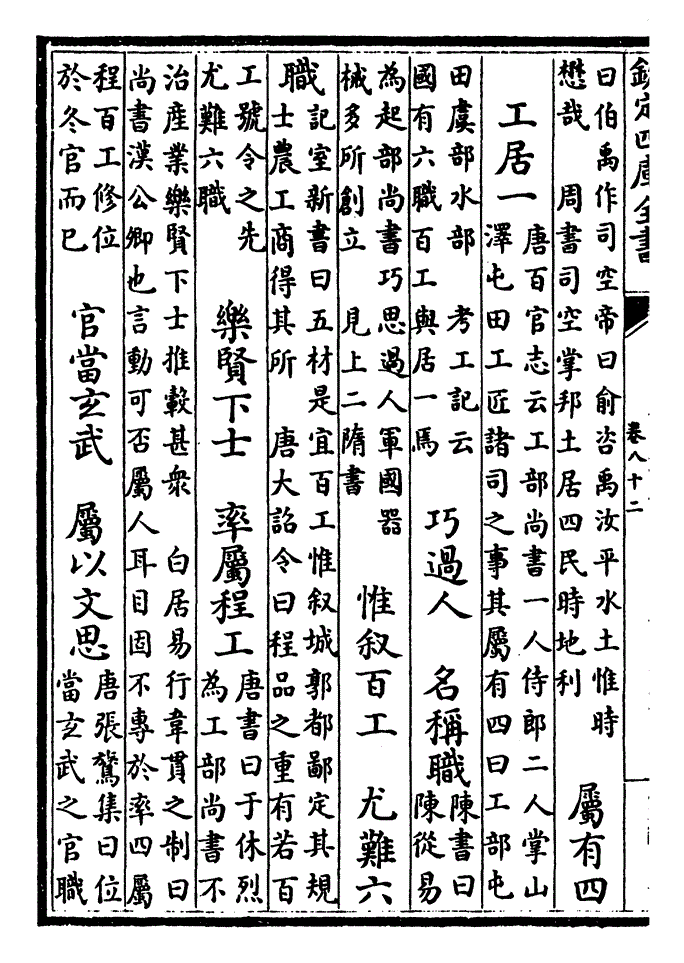 欽定四庫全書 卷八十二
曰伯禹作司空帝曰俞咨禹汝平水土惟時
懋哉 周書司空掌邦土居四民時地利
屬有四
工居一
唐百官志云工部尚書一人侍郎二人掌山
澤屯田工匠諸司之事其屬有四曰工部屯
田虞部水部 考工記云
國有六職百工與居一焉
巧過人 名稱職
陳書曰
陳從易
為起部尚書巧思過人軍國器
械多所創立 見上二隋書
惟叙百工 尤難六
職
記室新書曰五材是宜百工惟叙城郭都鄙定其規
士農工商得其所 唐大詔令曰程品之重有若百
工號令之先
尤難六職
樂賢下士 率屬程工
唐書曰于休烈
為工部尚書不
治産業樂賢下士推轂甚衆 白居易行韋貫之制曰
尚書漢公卿也言動可否屬人耳目固不專於率四屬
程百工修位
於冬官而已
官當玄武 屬以文思
唐張鷟集曰位
當玄武之官職